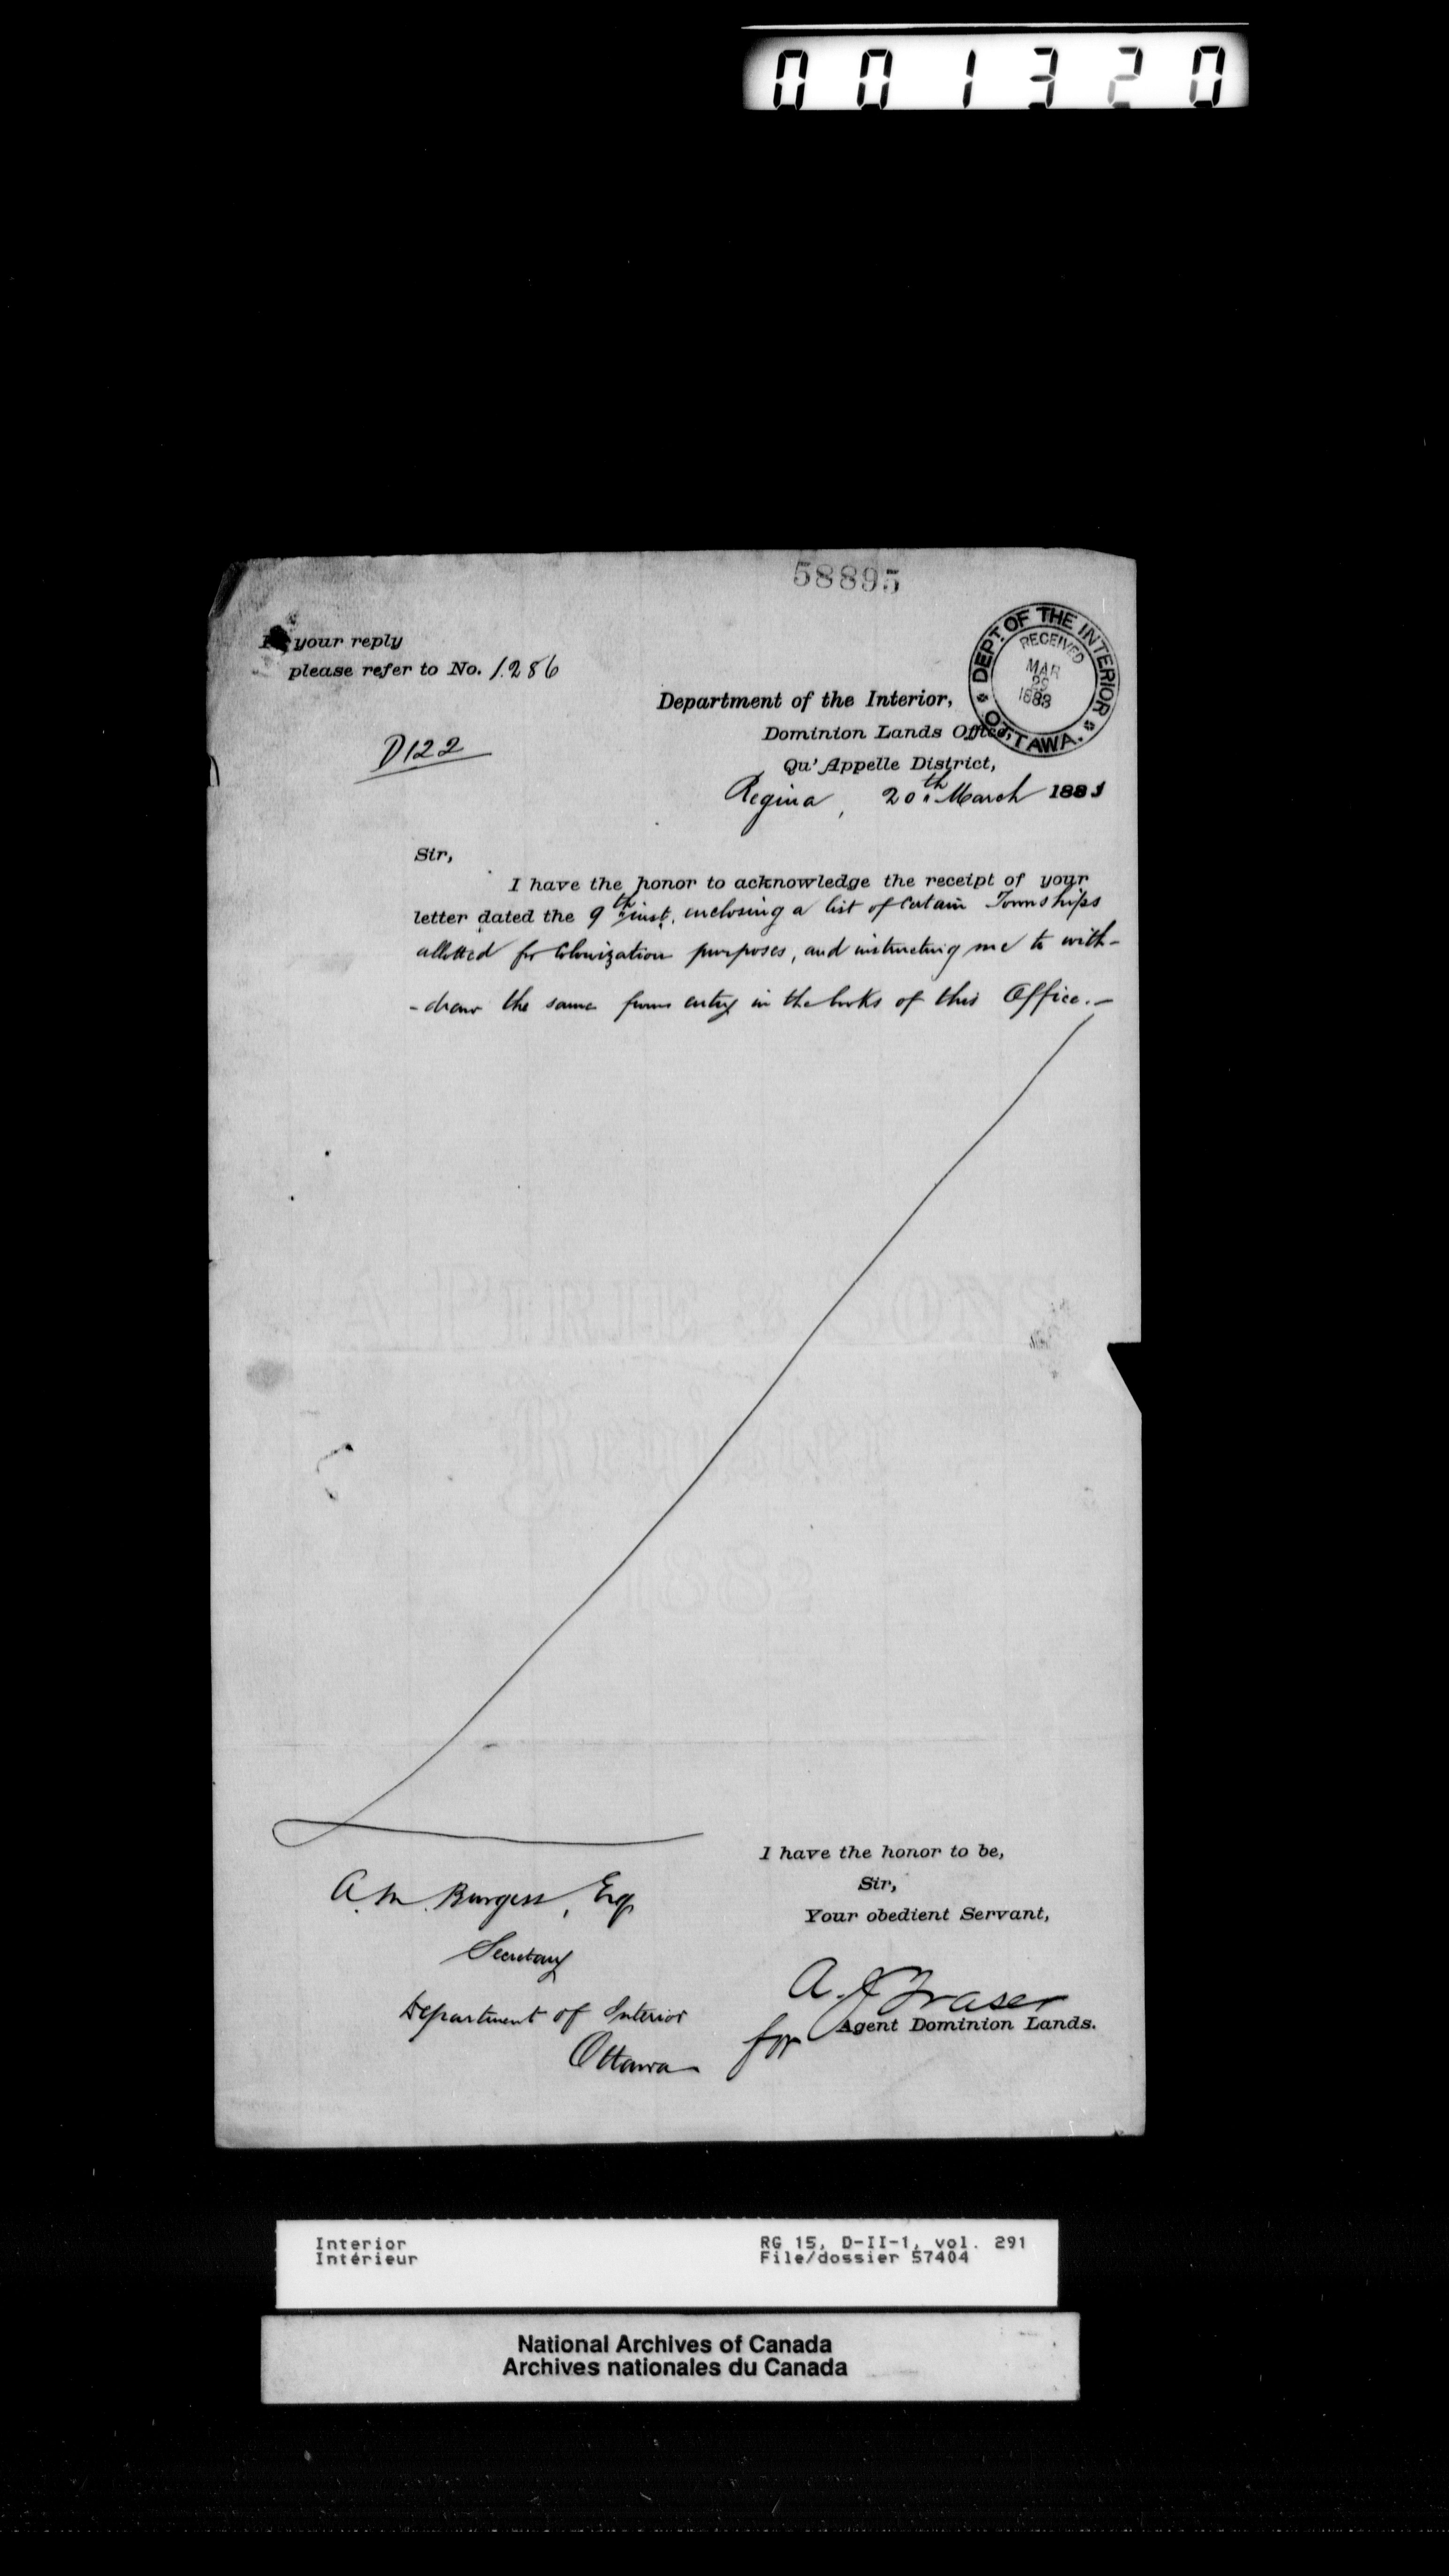 001320
58895
In your reply
please refer to No. 1286
DEPT. OF THE INTERIOR
RECEIVED
MAR
29
1883
OTTAWA.
Department of the Interior,
Dominion Lands Office,
Qu'Appelle District,
D122
Regina, 20th March 1883
Sir,
I have the honor to acknowledge the receipt of your
letter dated the 9th inst. enclosing a list of Certain Townships
allotted for Colonization purposes, and instructing me to with-
-draw the same from entry in the books of this Office.-
I have the honor to be,
Sir,
Your obedient Servant,
A. M. Burgess, Esq
Secretary
Department of Interior
Ottawa
A. J. Fraser
for Agent Dominion Lands.
Interior
Intérieur
RG 15, D-II-1, vol. 291
File/dossier 57404
National Archives of Canada
Archives nationales du Canada